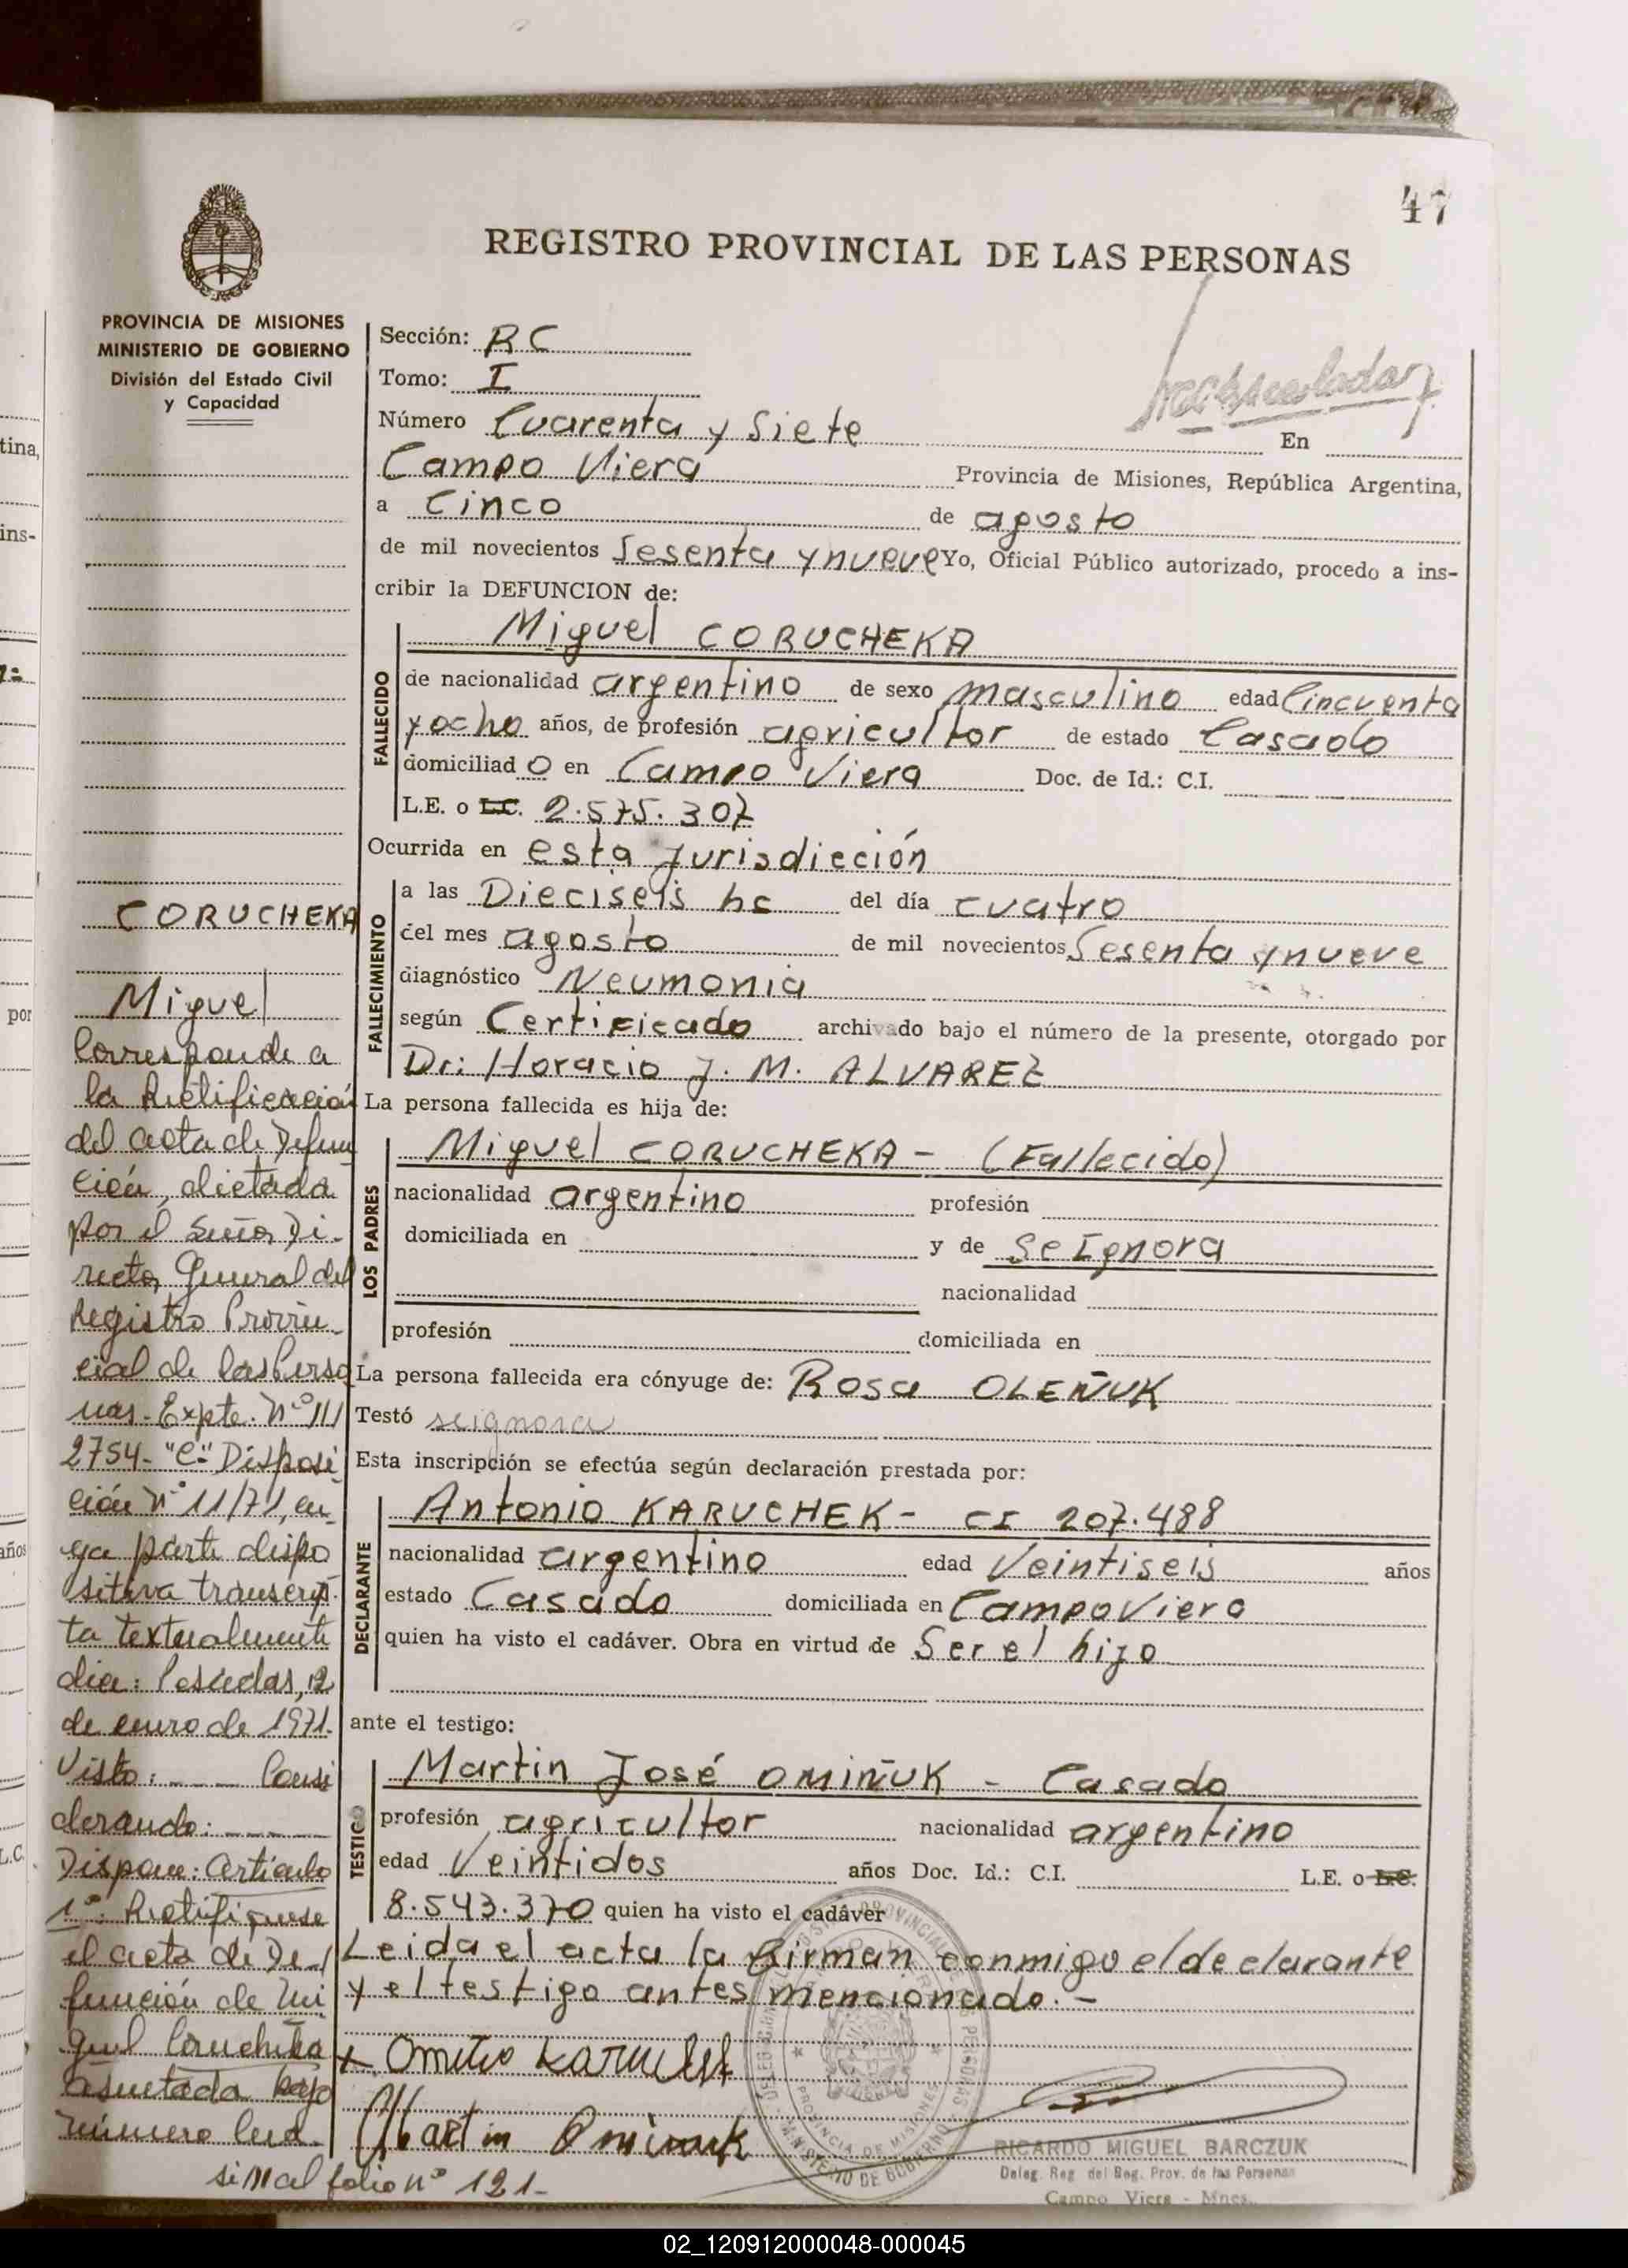 47
REGISTRO PROVINCIAL DE LAS PERSONAS
PROVINCIA DE MISIONES
MINISTERIO DE GOBIERNO
División del Estado Civil
y Capacidad
Sección: RC
Tomo: I
Número Cuarenta y Siete En
Campo Viera Provincia de Misiones, República Argentina,
a Cinco de agosto
de mil novecientos Sesenta y nueve Yo, Oficial Público autorizado, procedo a ins-
cribir la DEFUNCION de:
Miguel CORUCHEKA
FALLECIDO
de nacionalidad argentino de sexo masculino edad Cincuenta
y ocho años, de profesión agricultor de estado Casado
domiciliad o en Campo Viera Doc. de Id.: C.I.
L.E. o L.C. 2.575.307
Ocurrida en esta Jurisdicción
FALLECIMIENTO
a las Dieciseis hs del día cuatro
del mes agosto de mil novecientos Sesenta y nueve
diagnóstico Neumonia
según Certificado archivado bajo el número de la presente, otorgado por
Dr: Horacio J. M. ALVAREZ
La persona fallecida es hija de:
LOS PADRES
Miguel CORUCHEKA - (Fallecido)
nacionalidad argentino profesión
domiciliada en y de Se Ignora
nacionalidad
profesión domiciliada en
La persona fallecida era cónyuge de: Rosa OLEÑUK
Testó se ignora
Esta inscripción se efectúa según declaración prestada por:
DECLARANTE
Antonio KARUCHEK - CI 207.488
nacionalidad argentino edad Veintiseis años
estado Casado domiciliada en Campo Viera
quien ha visto el cadáver. Obra en virtud de Ser el hijo
ante el testigo:
TESTIGO
Martin José OMIÑUK - Casado
profesión agricultor nacionalidad argentino
edad Veintidos años Doc. Id.: C.I. L.E. o L.C.
8.543.370 quien ha visto el cadáver
Leida el acta la firman conmigo el declarante
y el testigo antes mencionado.-
Martin
RICARDO MIGUEL BARCZUK
Deleg. Reg. del Reg. Prov. de las Personas
Campo Viera - Mnes.
CORUCHEKA
Miguel
Corresponde a
la Rectificación
del acta de Defun
ción, dictada
por el Señor Di-
rector General del
Registro Provin-
cial de las Perso
nas - Expte. Nº 111
2754- "C"- Disposi
ción Nº 11/71, cu-
ya parte dispo
sitiva transcrip-
ta textualmente
dice: Posadas, 12
de enero de 1971.
Visto: ---- Consi
derando: ----
Dispone: Artículo
1º: Rectifíquese
el acta de De-
función de Mi
guel Corucheka
asentada bajo
número cua.
al folio nº 121-
02_120912000048-000045